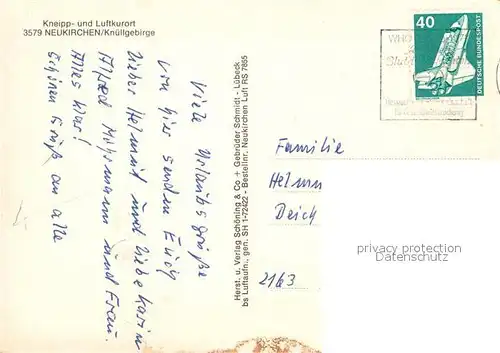 Kneipp- und Luftkurort
3579 NEUKIRCHEN/Knüllgebirge
Viele Urlaubsgrüße
von hier senden Euch
lieber Helmut und liebe Karin
Alfred und Frau.
Alles klar!
Schönen Gruß an alle
Herst. u. Verlag Schöning & Co + Gebrüder Schmidt - Lübeck
bs Luftaufn., gen. SH 1-72422 - Bestellnr. Neukirchen Luft RS 7665
40
DEUTSCHE BUNDESPOST
Familie
Deich
2163
privacy protection
Datenschutz